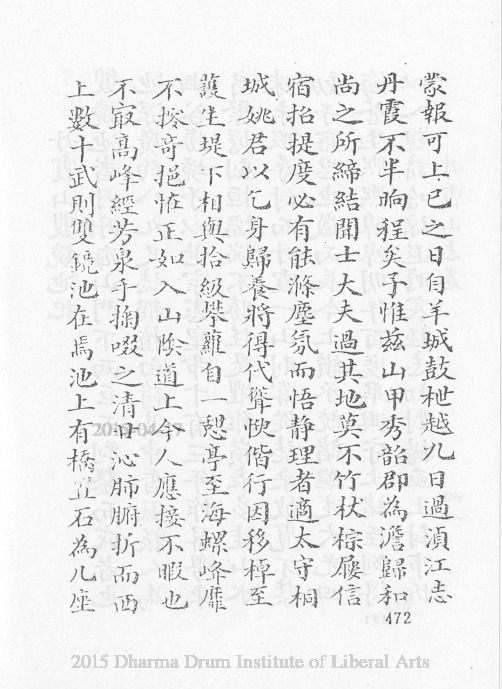 蒙報可上巳之日自羊城鼓枻越九日過湞江志
丹霞不半晌程矣予惟茲山甲秀韶郡為澹歸和
尚之所締結聞士大夫過其地莫不竹杖棕屨信
宿招提度必有能滌塵氛而悟静理者適太守桐
城姚君以乞身歸養將得代聳恱偕行因移棹至
護生堤下相與拾級攀蘿自一憩亭至海螺峰靡
不搜竒挹恠正如入山陰道上令人應接不暇也
不㝡高峰經芳泉手掬啜之清甘沁肺腑折而西
上數十武則雙鏡池在焉池上有橋疊石為几座
472
2015 Dharma Drum Institute of Liberal Arts